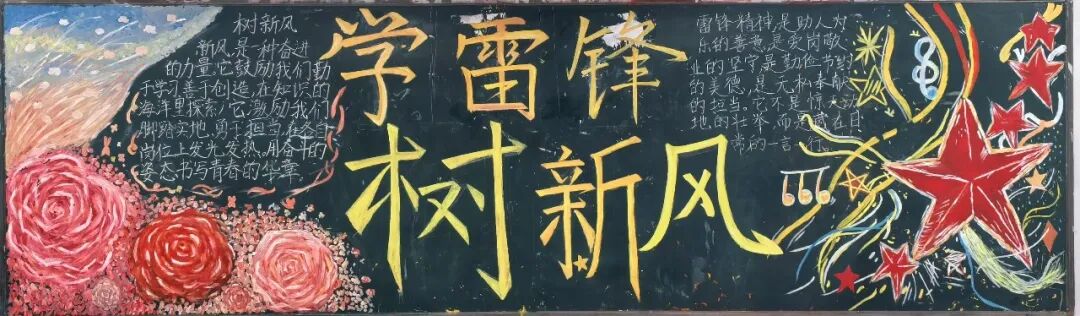 树新风
新风,是一种奋进
的力量,它鼓励我们勤
于学习,善于创造,在知识的
海洋里探索;它激励我们
脚踏实地,勇于担当,在各自
岗位上发光发热,用奋斗的
姿态书写青春的华章
学雷锋
树新风
雷锋精神,是助人为
乐的善意,是爱岗敬
业的坚守,是勤俭节约
的美德,是无私奉献
的担当。它不是惊天动
地的壮举,而是藏在日
常的一言一行。